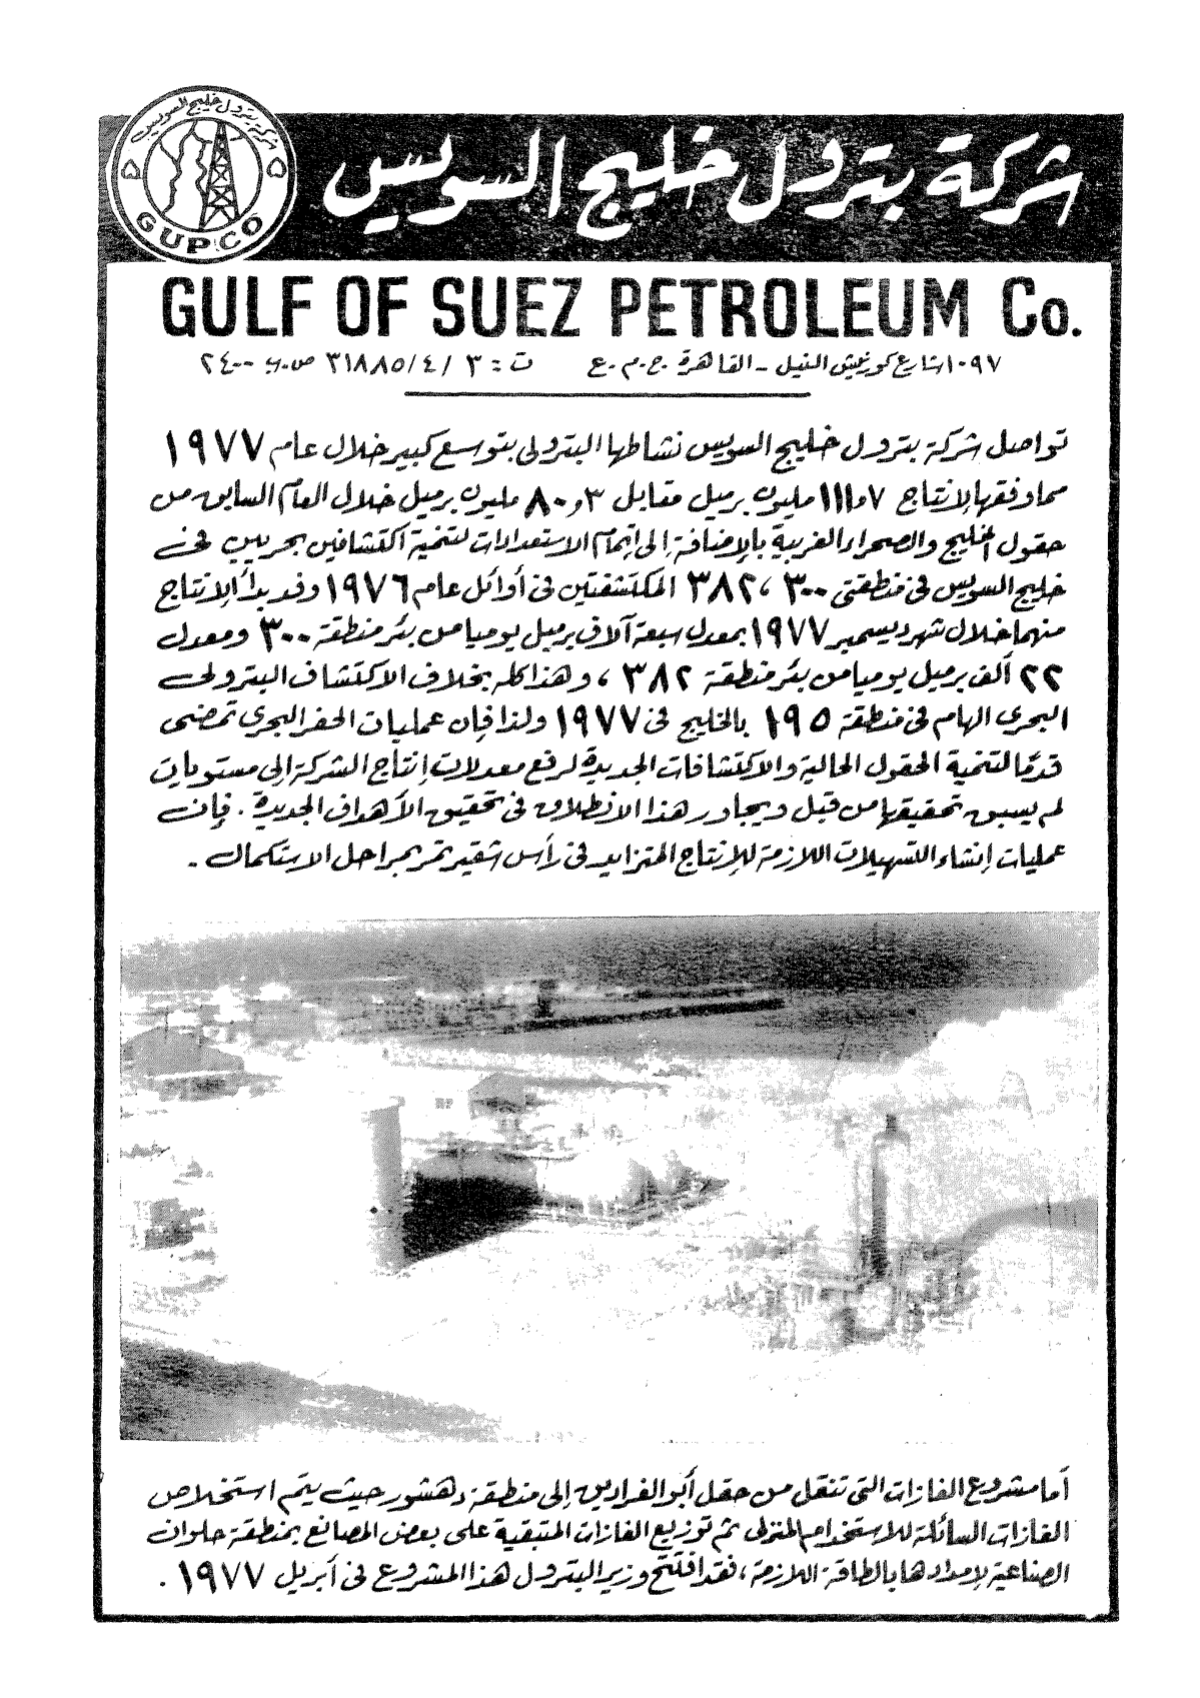 شركة بترول خليج السويس
GUPCO
شركة بترول خليج السويس
GULF OF SUEZ PETROLEUM Co.
١٠٩٧ شارع كورنيش النيل - القاهرة ج.م.ع ت: ٣ / ٤ / ٣١٨٨٥ ص.ب ٢٤٠٠
تواصل شركة بترول خليج السويس نشاطها البترولى بتوسع كبير خلال عام ١٩٧٧
بإنتاج ١١١٫٧ مليون برميل مقابل ٨٠٫٣ مليون برميل خلال العام السابق من
حقول الخليج والصحراء الغربية بالإضافة إلى إتمام الاستعدادات لتنمية اكتشافين بحريين فى
خليج السويس فى منطقتى ٣٠٠ ، ٣٨٢ المكتشفتين فى أوائل عام ١٩٧٦ وقد بدأ الإنتاج
منهما خلال شهر ديسمبر ١٩٧٧ بمعدل سبعة آلاف برميل يوميا من بئر منطقة ٣٠٠ ومعدل
٢٢ ألف برميل يوميا من بئر منطقة ٣٨٢ ، وهذا كله بخلاف الاكتشاف البترولى
البحرى الهام فى منطقة ١٩٥ بالخليج فى ١٩٧٧ ولذا فإن عمليات الحفر البحرى تمضى
قدمًا لتنمية الحقول الحالية والاكتشافات الجديدة لرفع معدلات إنتاج الشركة إلى مستويات
لم يسبق تحقيقها من قبل ويجاور هذا الانطلاق فى تحقيق الأهداف الجديدة . فإن
عمليات إنشاء التسهيلات اللازمة للإنتاج المتزايد فى رأس شقير تمر بمراحل الاستكمال .
أما مشروع الغازات التى تنقل من حقل أبو الغراديق إلى منطقة دهشور حيث يتم استخلاص
الغازات السائلة للاستخدام المنزلى ثم توزيع الغازات المتبقية على بعض المصانع بمنطقة حلوان
الصناعية لإمدادها بالطاقة اللازمة ، فقد افتتح وزير البترول هذا المشروع فى أبريل ١٩٧٧ .